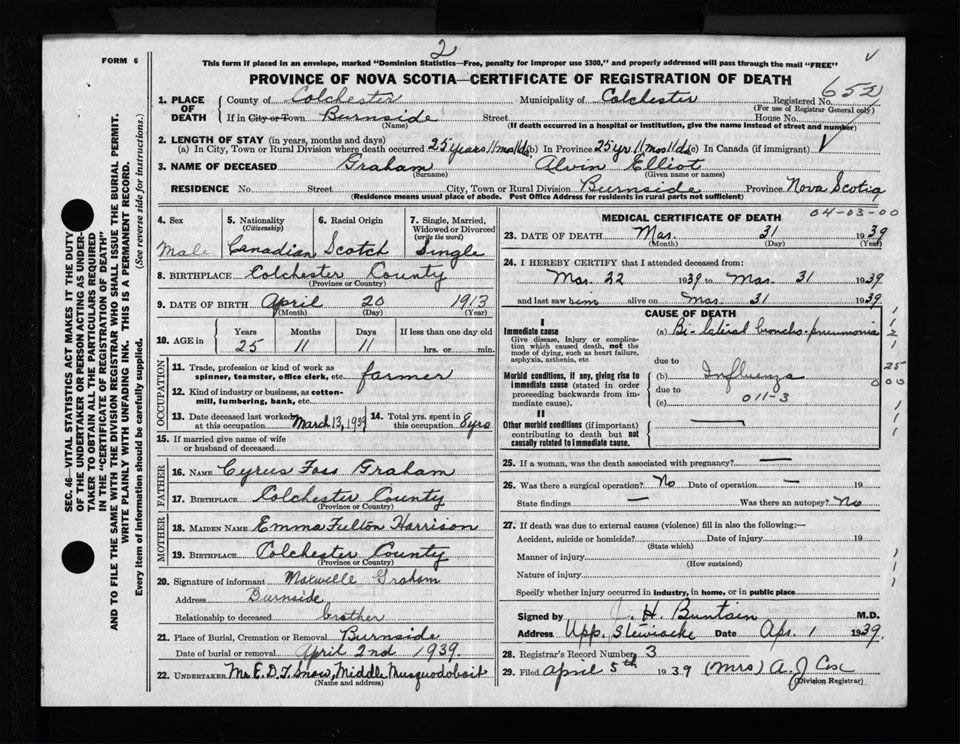 2
FORM 6
This form if placed in an envelope, marked "Dominion Statistics—Free, penalty for improper use $300," and properly addressed will pass through the mail "FREE"
PROVINCE OF NOVA SCOTIA—CERTIFICATE OF REGISTRATION OF DEATH
652
1. PLACE OF DEATH County of Colchester Municipality of Colchester Registered No.
(For use of Registrar General only)
If in City or Town Burnside Street House No.
(Name) (If death occurred in a hospital or institution, give the name instead of street and number)
2. LENGTH OF STAY (in years, months and days)
(a) In City, Town or Rural Division where death occurred 25 years 11 mo 11 ds (b) In Province 25 yr 11 mos 11 ds (c) In Canada (if immigrant)
3. NAME OF DECEASED Graham Alvin Elliot
(Surname) (Given name or names)
RESIDENCE No. Street City, Town or Rural Division Burnside Province Nova Scotia
(Residence means usual place of abode. Post Office Address for residents in rural parts not sufficient)
4. Sex
Male
5. Nationality
(Citizenship)
Canadian
6. Racial Origin
Scotch
7. Single, Married, Widowed or Divorced
(write the word)
Single
8. BIRTHPLACE Colchester County
(Province or Country)
9. DATE OF BIRTH April 20 1913
(Month) (Day) (Year)
10. AGE in Years Months Days If less than one day old
25 11 11 hrs. or min.
OCCUPATION
11. Trade, profession or kind of work as spinner, teamster, office clerk, etc. farmer
12. Kind of industry or business, as cotton-mill, lumbering, bank, etc.
13. Date deceased last worked at this occupation March 13, 1939
14. Total yrs. spent in this occupation 8 yrs
15. If married give name of wife or husband of deceased
FATHER
16. NAME Cyrus Foss Graham
17. BIRTHPLACE Colchester County
(Province or Country)
MOTHER
18. MAIDEN NAME Emma Fulton Harrison
19. BIRTHPLACE Colchester County
(Province or Country)
20. Signature of informant Maxwelle Graham
Address Burnside
Relationship to deceased brother
21. Place of Burial, Cremation or Removal Burnside
Date of burial or removal April 2nd 1939.
22. UNDERTAKER Mr. E. D. F. Snow, Middle Musquodoboit
(Name and address)
MEDICAL CERTIFICATE OF DEATH
04-03-00
23. DATE OF DEATH Mar. 31 1939
(Month) (Day) (Year)
24. I HEREBY CERTIFY that I attended deceased from:
Mar. 22 1939 to Mar. 31 1939
and last saw him alive on Mar. 31 1939
CAUSE OF DEATH
I
Immediate cause (a) Bi-lateral broncho-pneumonia
Give disease, injury or complication which caused death, not the mode of dying, such as heart failure, asphyxia, asthenia, etc
due to
Morbid conditions, if any, giving rise to immediate cause (stated in order proceeding backwards from immediate cause).
(b) Influenza
due to
(c) 011-3
25
000
II
Other morbid conditions (if important) contributing to death but not causally related to immediate cause.
25. If a woman, was the death associated with pregnancy? —
26. Was there a surgical operation? No Date of operation — 19
State findings — Was there an autopsy? No
27. If death was due to external causes (violence) fill in also the following:—
Accident, suicide or homicide? Date of injury 19
(State which)
Manner of injury
(How sustained)
Nature of injury
Specify whether injury occurred in industry, in home, or in public place
Signed by H. Buntain M.D.
Address Upp. Stewiacke Date Apr. 1 1939.
28. Registrar's Record Number 3
29. Filed April 5th 1939 (Mrs) A. J. Cox
(Division Registrar)
SEC. 46—VITAL STATISTICS ACT MAKES IT THE DUTY
OF THE UNDERTAKER OR PERSON ACTING AS UNDER-
TAKER TO OBTAIN ALL THE PARTICULARS REQUIRED
IN THE "CERTIFICATE OF REGISTRATION OF DEATH"
AND TO FILE THE SAME WITH THE DIVISION REGISTRAR WHO SHALL ISSUE THE BURIAL PERMIT.
WRITE PLAINLY WITH UNFADING INK. THIS IS A PERMANENT RECORD.
Every item of information should be carefully supplied. (See reverse side for instructions.)